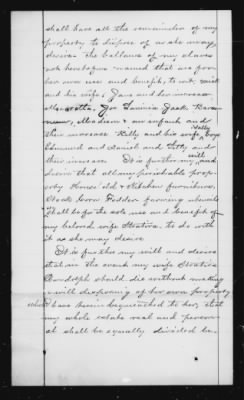 shall have all the remainder of my
property to dispose of as she may
desire. The ballance of my slaves
not heretofore named that are for
her own use and benefit, to wit,
and his wife, Jane and her increase
Jack
Madison & an infant and
their increase Kitty and his wife,
Edmund and Daniel and Kitty and
their increase. It is further my will and
desire that all my perishable prop-
erty House hold & Kitchen furniture,
Stock Corn Fodder farming utensils
Shall be for the sole use and benefit of
my beloved wife to do with
it as she may desire
It is further my will and desire
that in the event my wife
Randolph should die without making
a will disposing of her own property
which I have herein bequeathed to her, that
my whole estate real and person-
al shall be equally divided be-